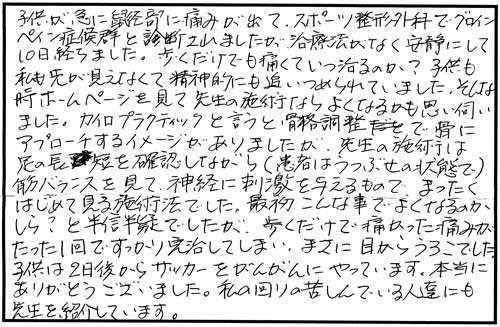 子供が急に鼠径部に痛みが出て、スポーツ整形外科でグロイン
ペイン症候群と診断されましたが、治療法がなく安静にして
10日経ちました。歩くだけでも痛くていつ治るのか？子供も
私も先が見えなくて精神的にも追いつめられていました。そんな
時ホームページを見て先生の施術ならよくなるかも思い伺い
ました。カイロプラクティックと言うと骨格調整とで骨に
アプローチするイメージがありましたが、先生の施術は
足の長短を確認しながら(患者はうつぶせの状態で)
筋バランスを見て、神経に刺激を与えるもので、まったく
はじめて見る施術法でした。最初こんな事でよくなるのか
しら？と半信半疑でしたが、歩くだけで痛かった痛みが
たった1回ですっかり完治してしまい、まさに目からうろこでした
子供は2日後からサッカーをがんがんにやっています。本当に
ありがとうございました。私の回りの苦しんでいる人達にも
先生を紹介しています。